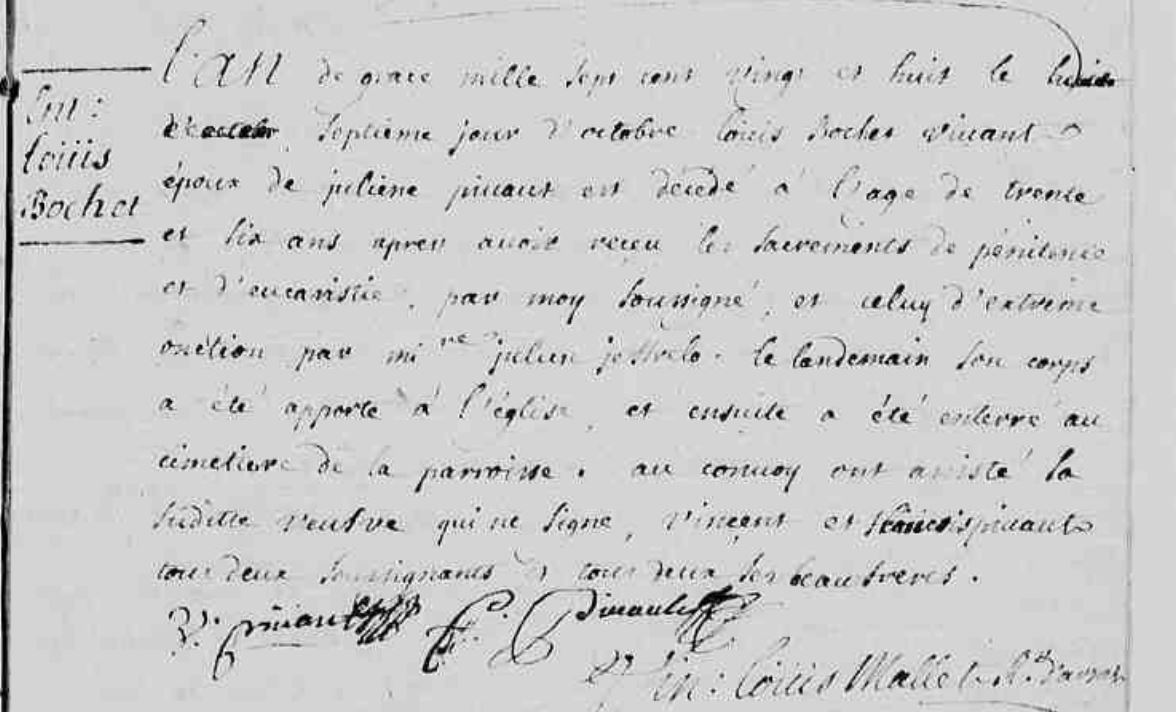 Sep:
Loüis
Bochet
L'AN de grace mille sept cent vingt et huit le
septieme jour d'octobre Loüis Bochet vivant
époux de juliene pivaut est décédé a l'age de trente
et six ans apres avoir reçeu les sacrements de pénitence
et d'eucaristie, par moy soussigné, et celuy d'extrême
onction par mi^re julien jostrelo. le landemain son corps
a été apporté à l'église, et ensuite a été enterré au
cimetiere de la parroisse. au convoy ont assisté la
suditte veufve qui ne signe, vincent et françois pivaut
tous deux soussignants et tous deux ses beaufreres.
V: pivaut F: pivault
Loüis Mallet